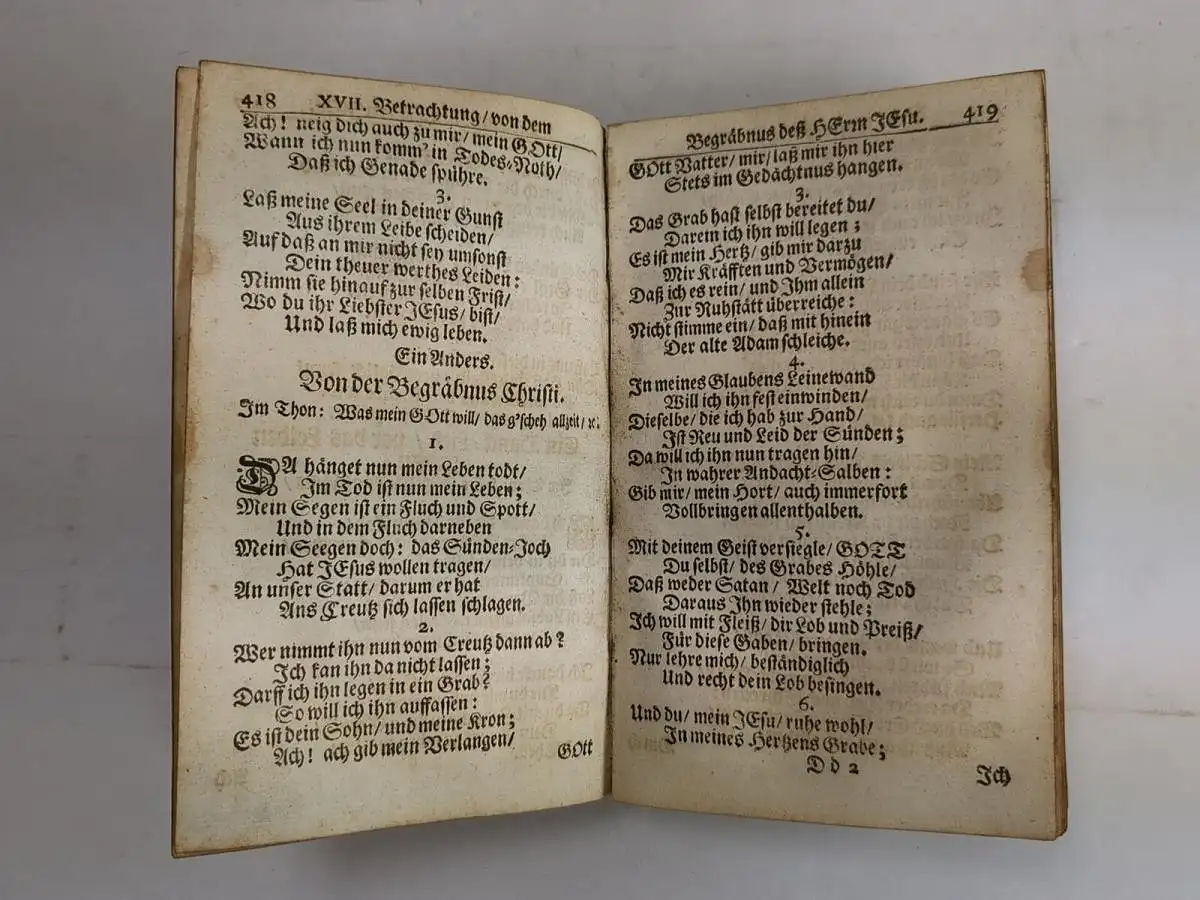 418 XVII. Betrachtung/ von dem
Ach! neig dich auch zu mir/ mein GOtt/
Wann ich nun komm' in Todes-Noth/
Daß ich Genade spühre.
3.
Laß meine Seel in deiner Gunst
Aus ihrem Leibe scheiden/
Auf daß an mir nicht sey umsonst
Dein theuer werthes Leiden:
Nimm sie hinauf zur selben Frist/
Wo du ihr Liebster JEsus/ bist/
Und laß mich ewig leben.
Ein Anders.
Von der Begräbnus Christi.
Im Thon: Was mein GOtt will/ das g'scheh allzeit/ ꝛc.
1.
DA hänget nun mein Leben todt/
Im Tod ist nun mein Leben;
Mein Segen ist ein Fluch und Spott/
Und in dem Fluch darneben
Mein Seegen doch: das Sünden-Joch
Hat JEsus wollen tragen/
An unser Statt/ darum er hat
Ans Creutz sich lassen schlagen.
2.
Wer nimmt ihn nun vom Creutz dann ab?
Ich kan ihn da nicht lassen;
Darff ich ihn legen in ein Grab?
So will ich ihn auffassen:
Es ist dein Sohn/ und meine Kron;
Ach! ach gib mein Verlangen/
GOtt
Begräbnus deß HErrn JEsu. 419
GOtt Vatter/ mir/ laß mir ihn hier
Stets im Gedächtnus hangen.
3.
Das Grab hast selbst bereitet du/
Darein ich ihn will legen;
Es ist mein Hertz/ gib mir darzu
Mir Kräfften und Vermögen/
Daß ich es rein/ und Ihm allein
Zur Ruhstätt überreiche:
Nicht stimme ein/ daß mit hinein
Der alte Adam schleiche.
4.
In meines Glaubens Leinewand
Will ich ihn fest einwinden/
Dieselbe/ die ich hab zur Hand/
Ist Reu und Leid der Sünden;
Da will ich ihn nun tragen hin/
In wahrer Andacht-Salben:
Gib mir/ mein Hort/ auch immerfort
Vollbringen allenthalben.
5.
Mit deinem Geist versiegle/ GOTT
Du selbst/ des Grabes Höhle/
Daß weder Satan/ Welt noch Tod
Daraus Ihn wieder stehle;
Ich will mit Fleiß/ dir Lob und Preiß/
Für diese Gaben/ bringen.
Nur lehre mich/ beständiglich
Und recht dein Lob besingen.
6.
Und du/ mein JEsu/ ruhe wohl/
In meines Hertzens Grabe;
D d 2
Ich